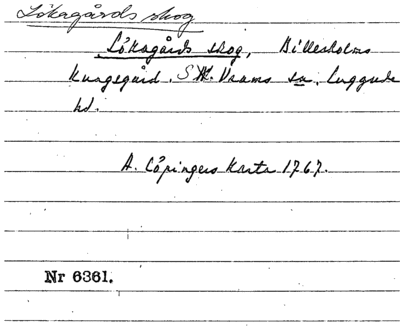 Lökagårds skog
Lökagårds skog, Billesholms
kungsgård. S. Vrams sn. Luggude
hd.
A. Cöpingers karta 1767.
Nr 6361.